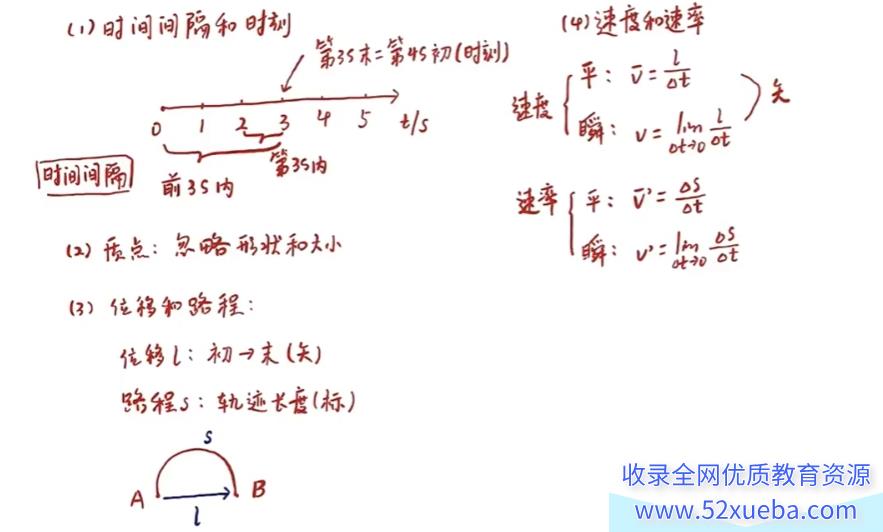 (1) 时间间隔和时刻
第3S末=第4S初(时刻)
0 1 2 3 4 5 t/s
时间间隔
前3S内
第3S内
(2) 质点: 忽略形状和大小
(3) 位移和路程:
位移l: 初→末(矢)
路程s: 轨迹长度(标)
s
A B
l
(4) 速度和速率
速度
平: v̄ = l/Δt
瞬: v = lim Δt→0 l/Δt
矢
速率
平: v̄' = ΔS/Δt
瞬: v' = lim Δt→0 ΔS/Δt
收录全网优质教育资源
www.52xueba.com